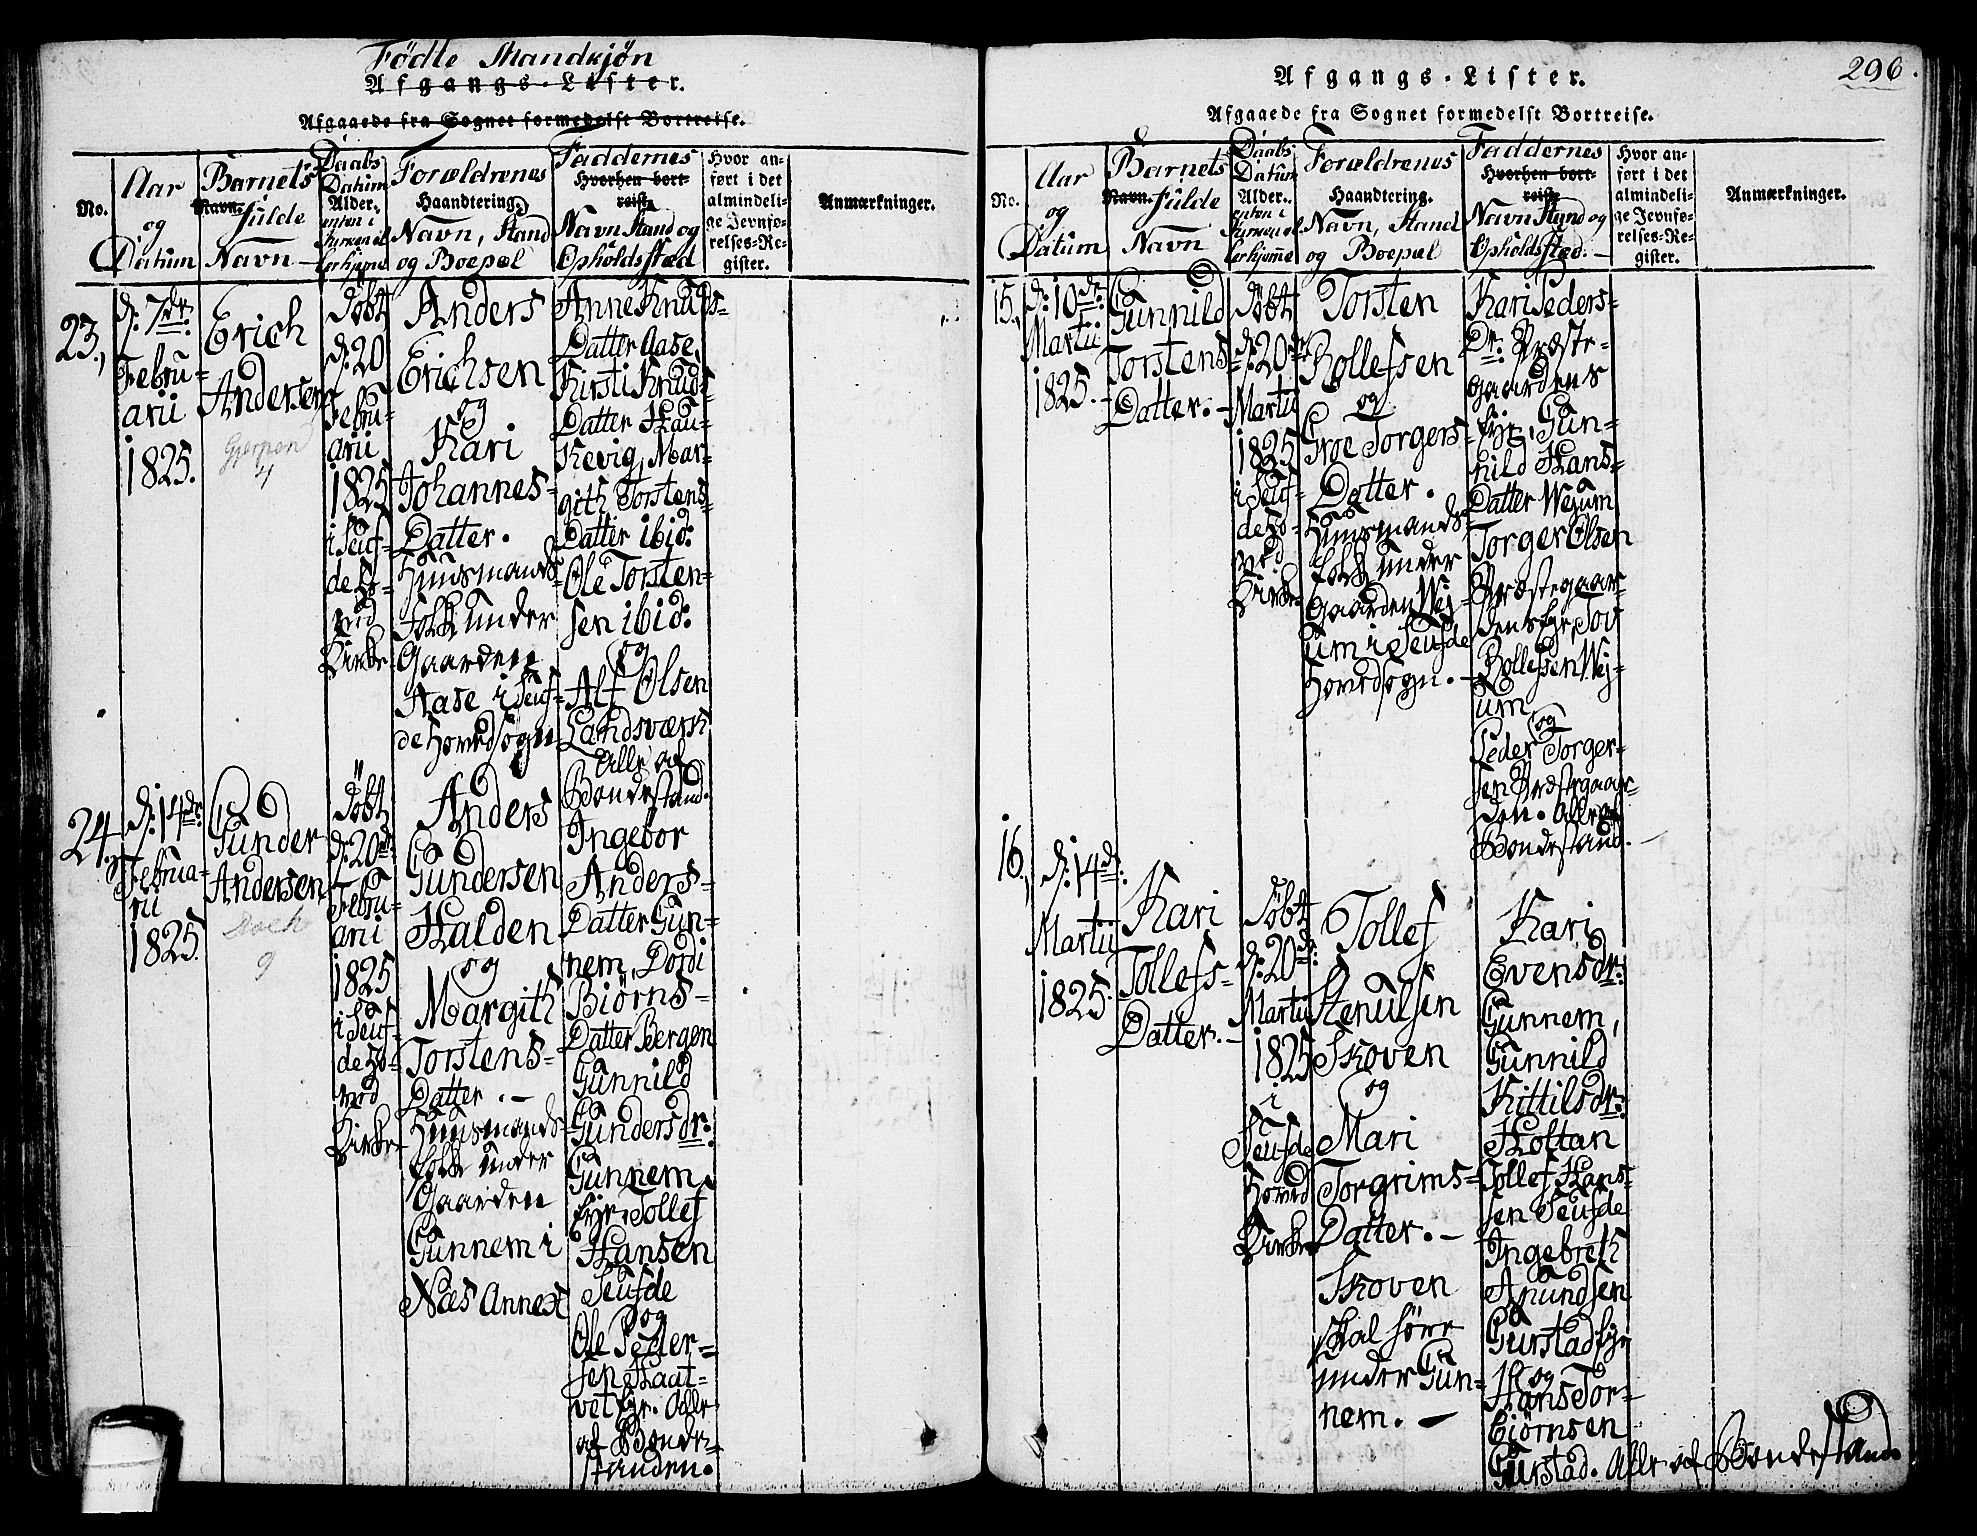 Fødte Mandkjøn
Afgangs-Lister.
Afgaaede fra Sognet formedelst Bortreise.
No.
Aar
og
Datum
Barnets
Navn. fulde
Navn
Daabs
Datum
Alder.
enten i
Forældrenes
Haandtering.
Navn, Stand
og Boepæl
Faddernes
Hvorhen bort-
reist.
Navn Stand og
Opholds stæd
Hvor an-
ført i det
almindeli-
ge Jevnfø-
relses-Re-
gister.
Anmærkninger.
23.,
d: 7de:
Febru-
arii
1825.
Erich
Andersen
Gjerpen
4
Døbt
d: 20
Febru-
arii
1825
i Seuf-
de Ho-
ved
Kirke
Anders
Erichsen
og
Kari
Johannes-
Datter.
Huusmands-
Folk under
Gaarden
Aase i Seuf-
de Hovedsogn
Anne Knuds-
Datter Aase,
Kirsti Knuds-
Datter Hau-
Kevig, Mar-
gith Torstens-
Datter ibid:
Ole Torsten-
sen ibid:
og
Alf Olsen
Landsværk
Alle af
Bondestand.
24.,
d: 14de:
Februa-
rii
1825.
Gunder
Andersen
9
Døbt
d: 20de:
Febru-
arii
1825
i Seuf-
de Ho-
ved
Kirke
Anders
Gundersen
Halden
og
Margith
Torstens-
Datter. -
Huusmands-
Folk under
Gaarden
Gunnem i
Næs Annex
Ingebor
Anders-
Datter Gun-
nem, Dordi
Biørns-
Datter Bergen
Gunnild
Gundersdr:
Gunnem
fyr, Tollef
Hansen
Seufde
og
Ole Peder-
sen Haat-
vet fyr. Alle
af Bonde-
standen.
296.
Afgangs-Lister.
Afgaaede fra Sognet formedelst Bortreise.
No.
Aar
og
Datum
Barnets
Navn. fulde
Navn
Daabs
Datum
Alder.
enten i
Forældrenes
Haandtering.
Navn, Stand
og Boepæl
Faddernes
Hvorhen bort-
reist.
Navn Stand og
Opholds stæd. -
Hvor an-
ført i det
almindeli-
ge Jevnfø-
relses-Re-
gister.
Anmærkninger.
15.,
d: 10de:
Martii
1825. -
Gunnild
Torstens-
Datter. -
Døbt
d: 20de:
Martii
1825
i Seuf-
de Ho-
ved
Kirke
Torsten
Rollefsen
og
Groe Torgers-
Datter.
Huusmands-
Folk under
Gaarden Wej-
um i Seufde
Hovedsogn. -
Kari Peders-
Dr: Præste-
gaardens
fyr, Gun-
hild Hans-
Datter Wejum
Torger Olsen
Præstegaar-
dens fyr, Tov
Rollefsen Wej-
um
og
Peder Torger-
sen Præstegaar-
den. Alle af
Bondestand. -
16.,
d: 14de:
Martii
1825.
Kari
Tollefs-
Datter. -
Døbt
d: 20de:
Martii
1825
i
Seufde
Hoved
Kirke
Tollef
Stenulsen
Skoven
og
Mari
Torgrims-
Datter. -
Skoven
under Gun-
nem. -
Kari
Evensdr:
Gunnem,
Gunnild
Kittilsdr:
Holtan
Tollef Hans-
sen Seufde
Ingebreth
Anundsen
Gurstad fyr
og
Hans Tor-
biørnsen
Gurstad. Alle af Bondestand